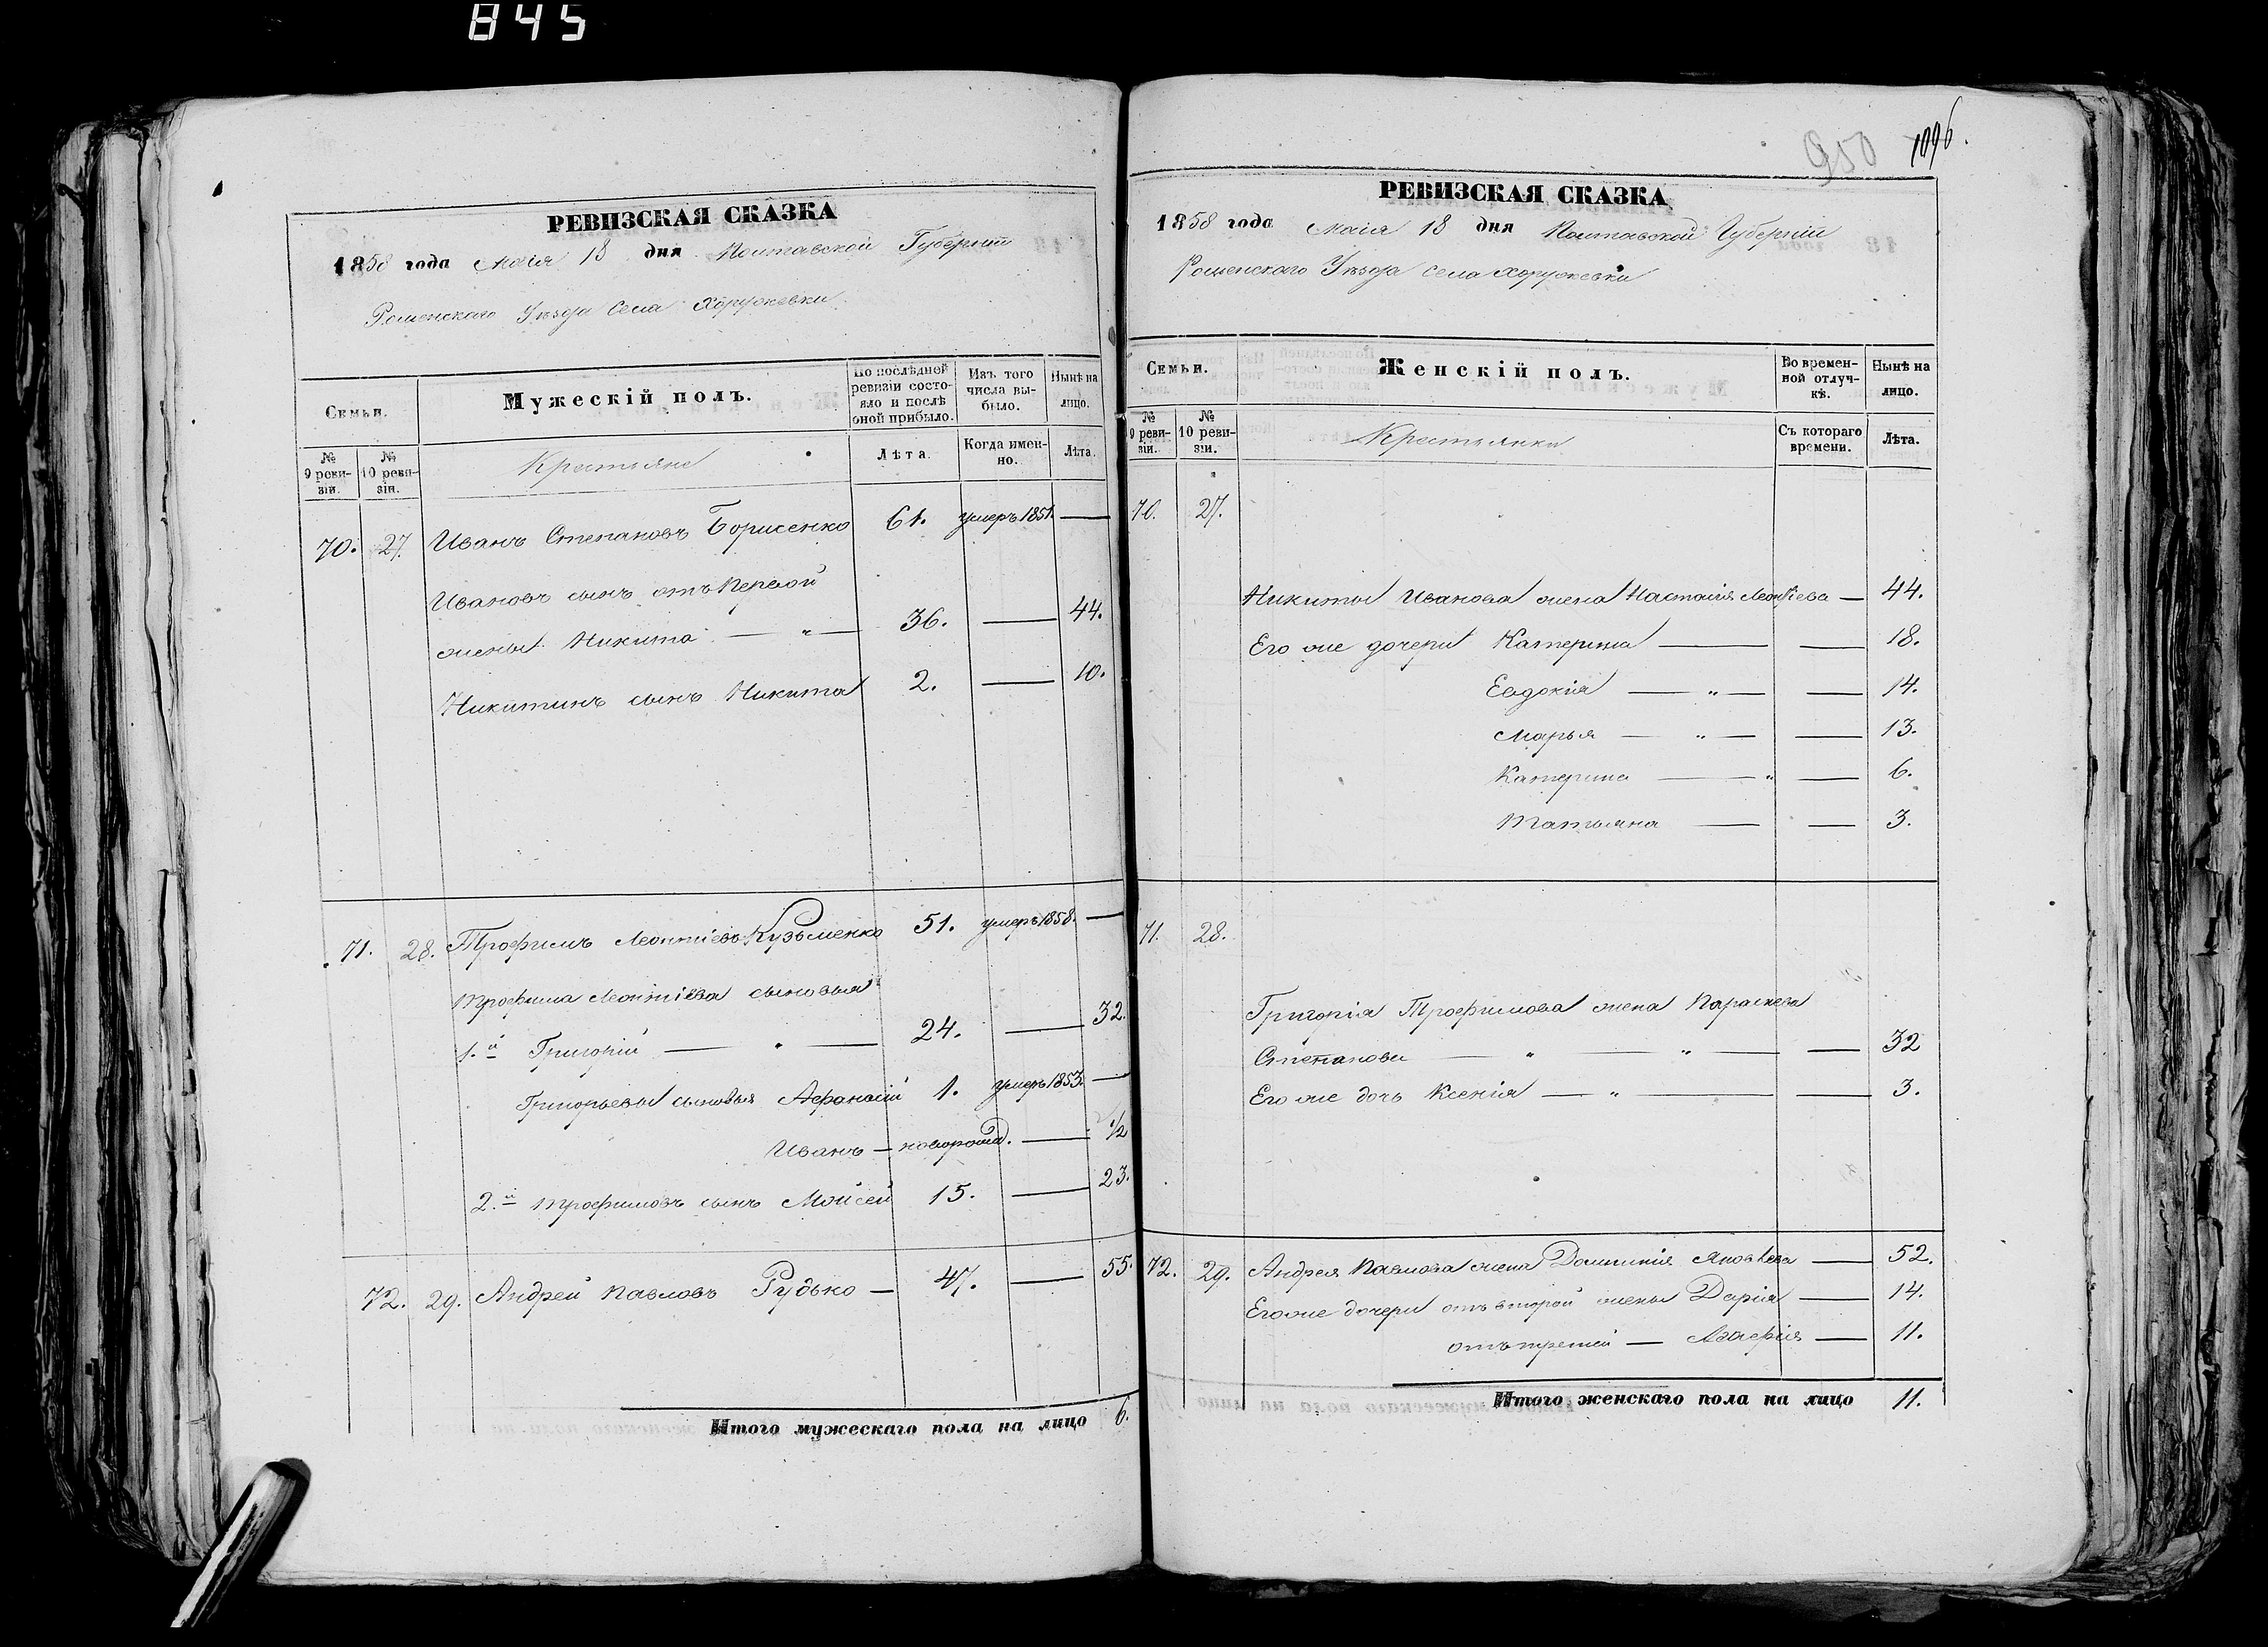 845
РЕВИЗСКАЯ СКАЗКА
1858 года Маія 18 дня Полтавской Губерніи
Роменскаго Уѣзда Села Хоружевки
Семьи.
Мужескій полъ.
По послѣдней ревизіи состояло и послѣ оной прибыло.
Изъ того числа выбыло.
Нынѣ на лицо.
№ 9 ревизіи.
№ 10 ревизіи.
Крестьяне
Лѣта.
Когда именно.
Лѣта.
70. 27. Иванъ Степановъ Борисенко 61. умеръ 1851. —
Ивановъ сынъ отъ первой
жены Никита — „ — 36. — 44.
Никитинъ сынъ Никита 2. — 10.
71. 28. Трофимъ Леонтіевъ Кузьменко 51. умеръ 1858. —
Трофима Леонтіева сыновья
1.й Григорій — „ — 24. — 32.
Григорьевы сыновья Афанасій 1. умеръ 1853. —
Иванъ — новорожд. — 1/2
2.й Трофимовъ сынъ Мойсей 15. — 23.
72. 29. Андрей Павловъ Рудько — 47. — 55.
Итого мужескаго пола на лицо 6.
950 1096.
РЕВИЗСКАЯ СКАЗКА
1858 года Маія 18 дня Полтавской Губерніи
Роменскаго Уѣзда села Хоружевки
Семьи.
Женскій полъ.
Во временной отлучкѣ.
Нынѣ на лицо.
№ 9 ревизіи.
№ 10 ревизіи.
Крестьянки
Съ котораго времени.
Лѣта.
70. 27.
Никиты Иванова жена Настасія Леонтіева — 44.
Его же дочери Катерина — — 18.
Евдокія — „ — — 14.
Марья — „ — — 13.
Катерина — „ — 6.
Татьяна — — 3.
71. 28.
Григорія Трофимова жена Параскева
Степанова — „ — „ — — 32
Его же дочь Ксенія — „ — — 3.
72. 29. Андрея Павлова жена Домникія Яковлева — 52.
Его же дочери отъ второй жены Дарія — 14.
отъ третей — Агафія — 11.
Итого женскаго пола на лицо 11.